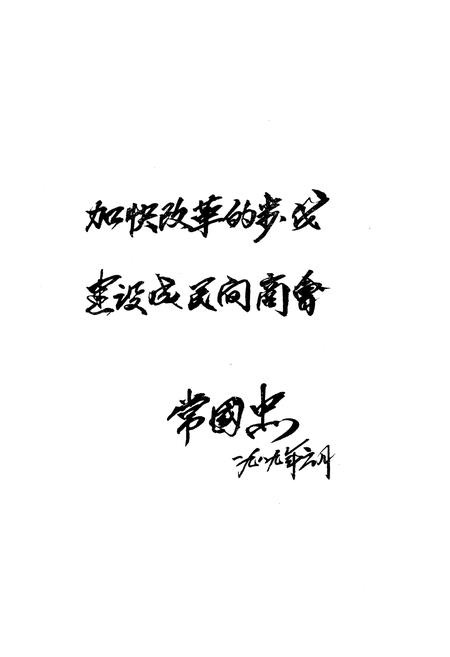 加快改革的步伐
建设成民间商會
常國忠
一九八九年六月